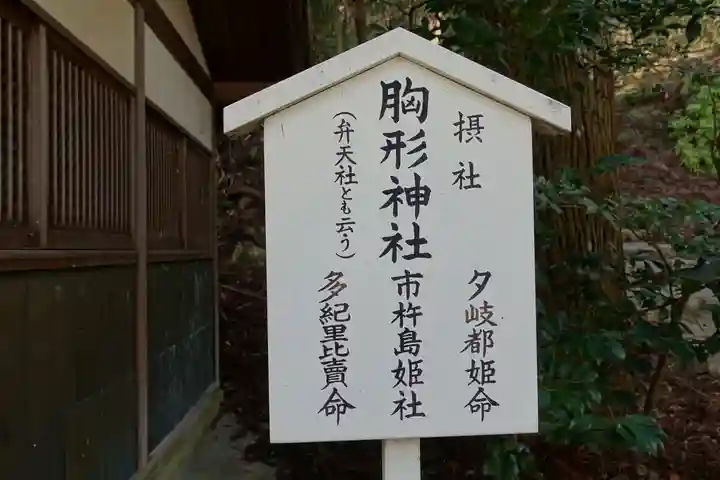 摂社
夕岐都姫命
胸形神社
市杵島姫社
(弁天社とも云う)
多紀里比賣命